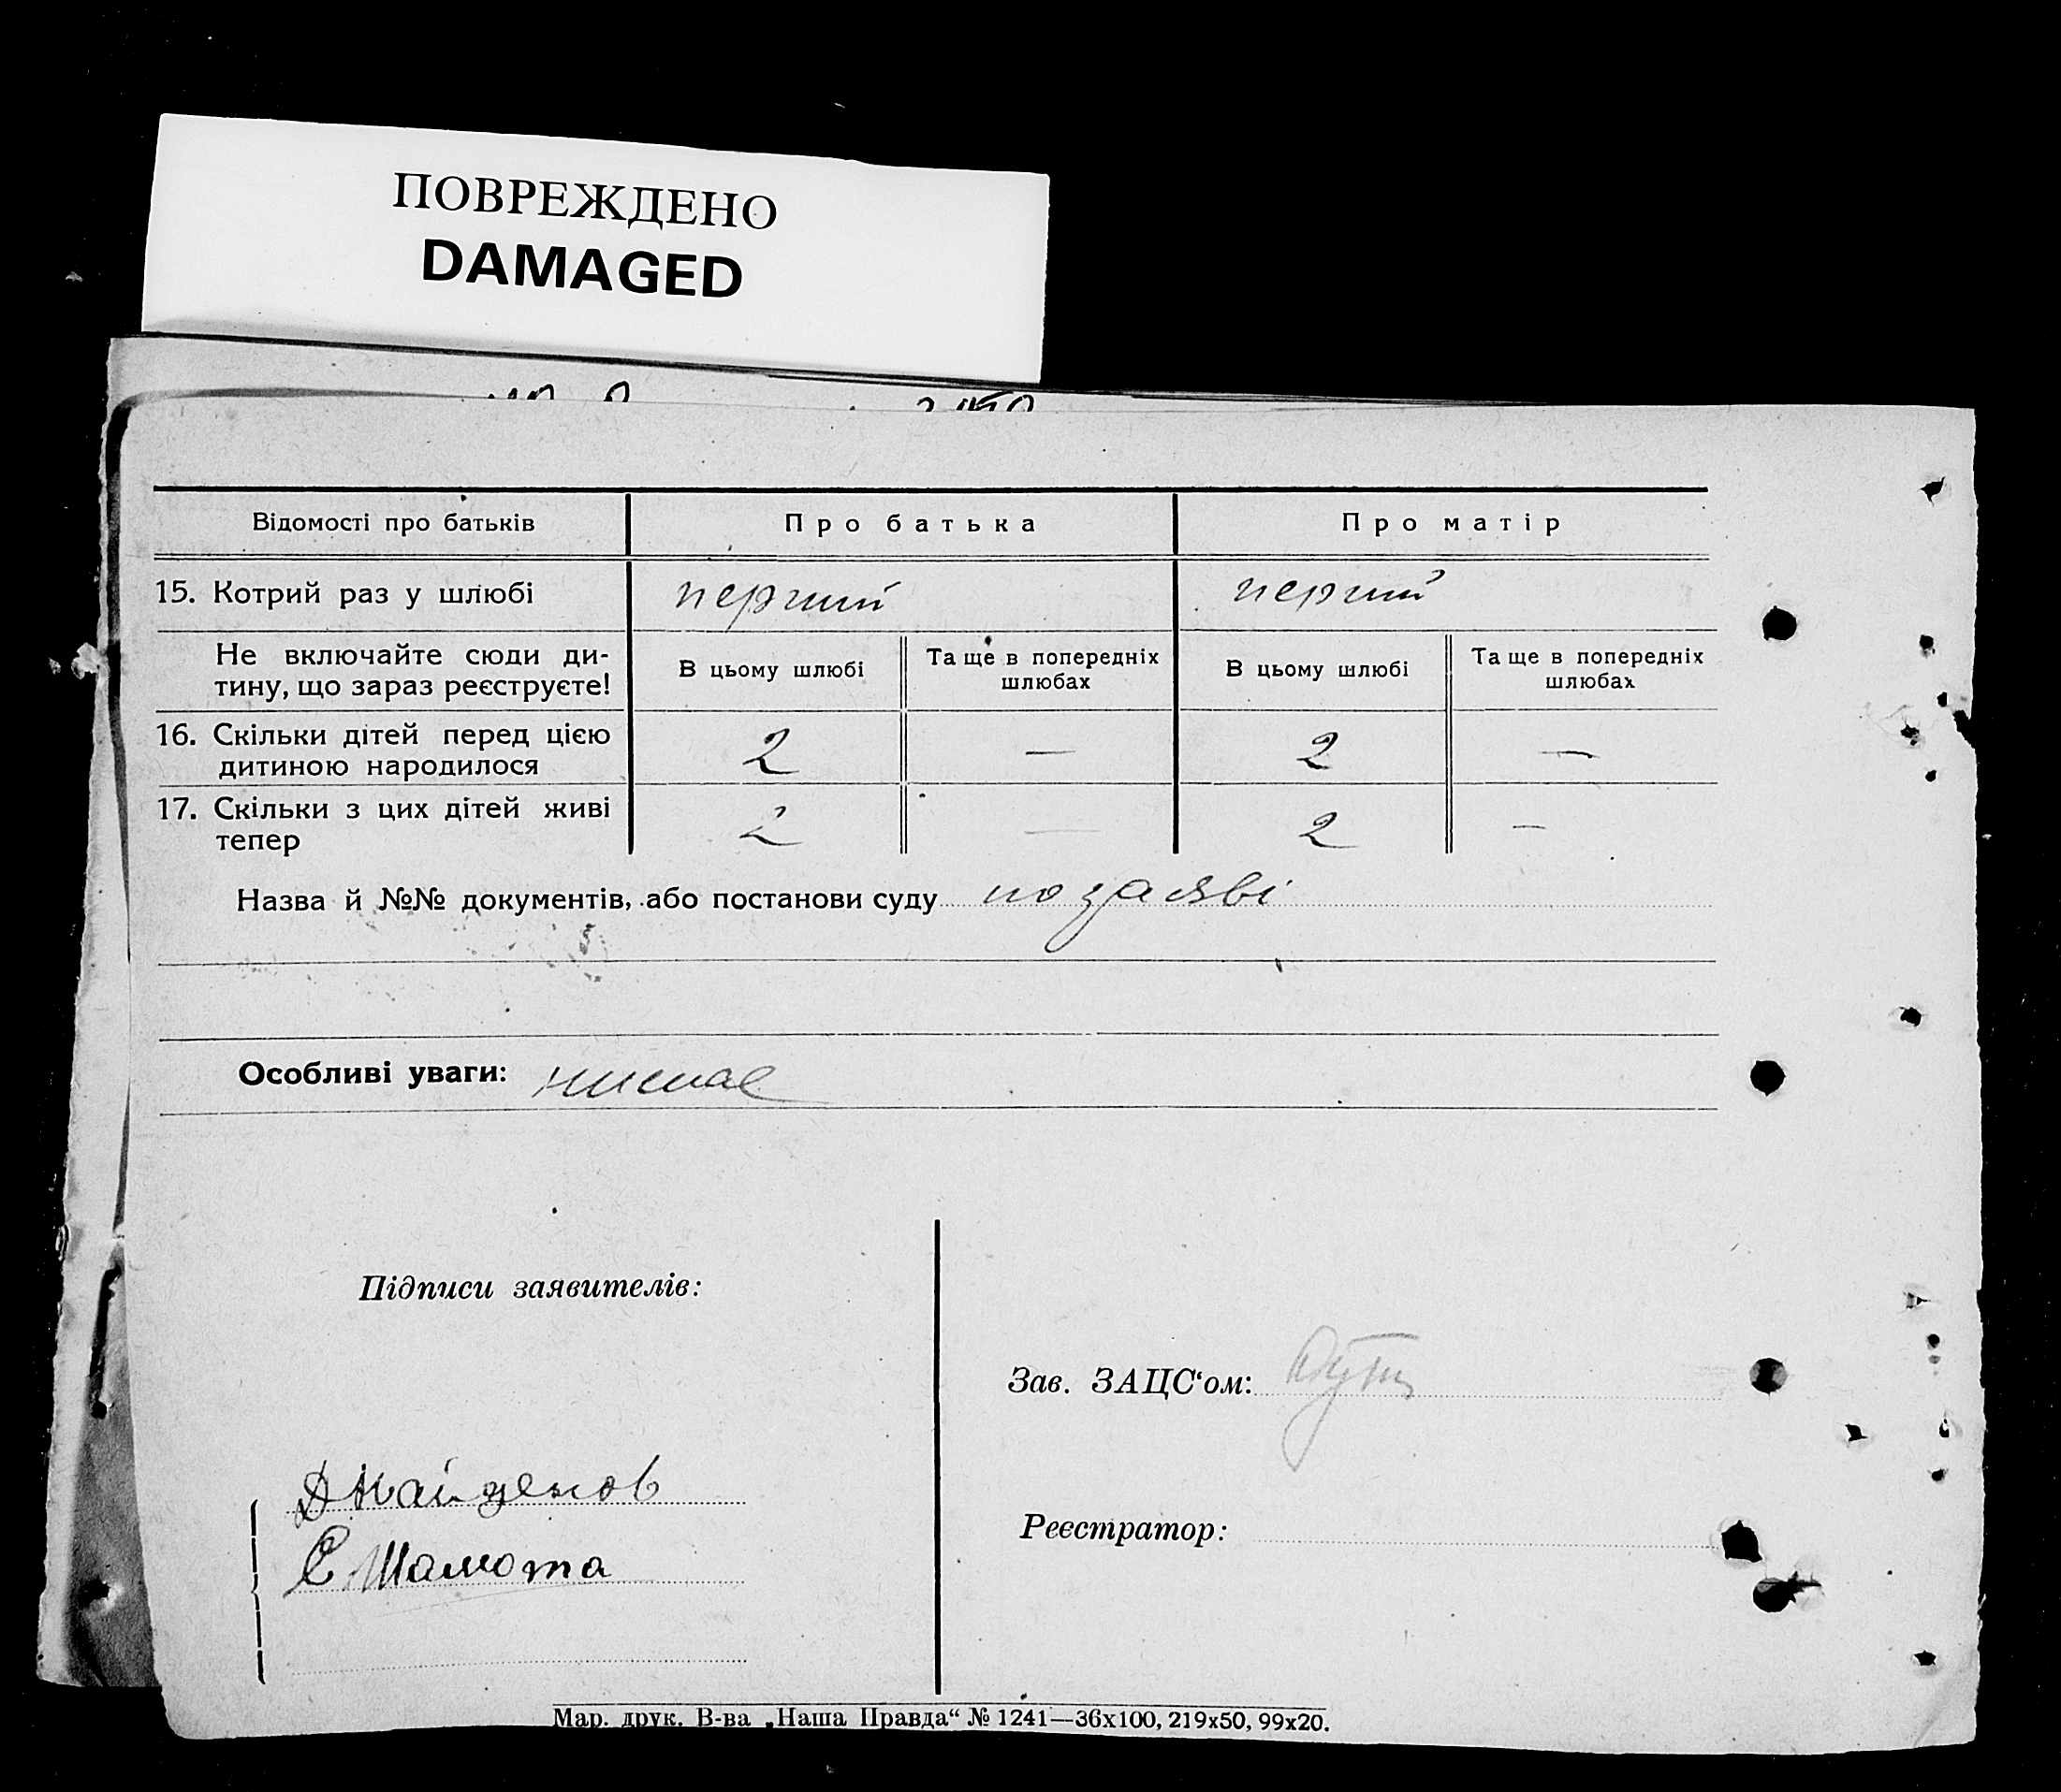 ПОВРЕЖДЕНО
DAMAGED
Відомості про батьків
Про батька
Про матір
15. Котрий раз у шлюбі
перший
перший
Не включайте сюди ди-
тину, що зараз реєструєте!
В цьому шлюбі
Та ще в попередніх
шлюбах
В цьому шлюбі
Та ще в попередніх
шлюбах
16. Скільки дітей перед цією
дитиною народилося
2
—
2
—
17. Скільки з цих дітей живі
тепер
2
—
2
—
Назва й №№ документів, або постанови суду по заяві
Особливі уваги: нимає
Підписи заявителів:
Зав. ЗАЦС‘ом:
Д Найденов
Є Шамота
Реєстратор:
Мар. друк. В-ва „Наша Правда“ № 1241—36х100, 219х50, 99х20.